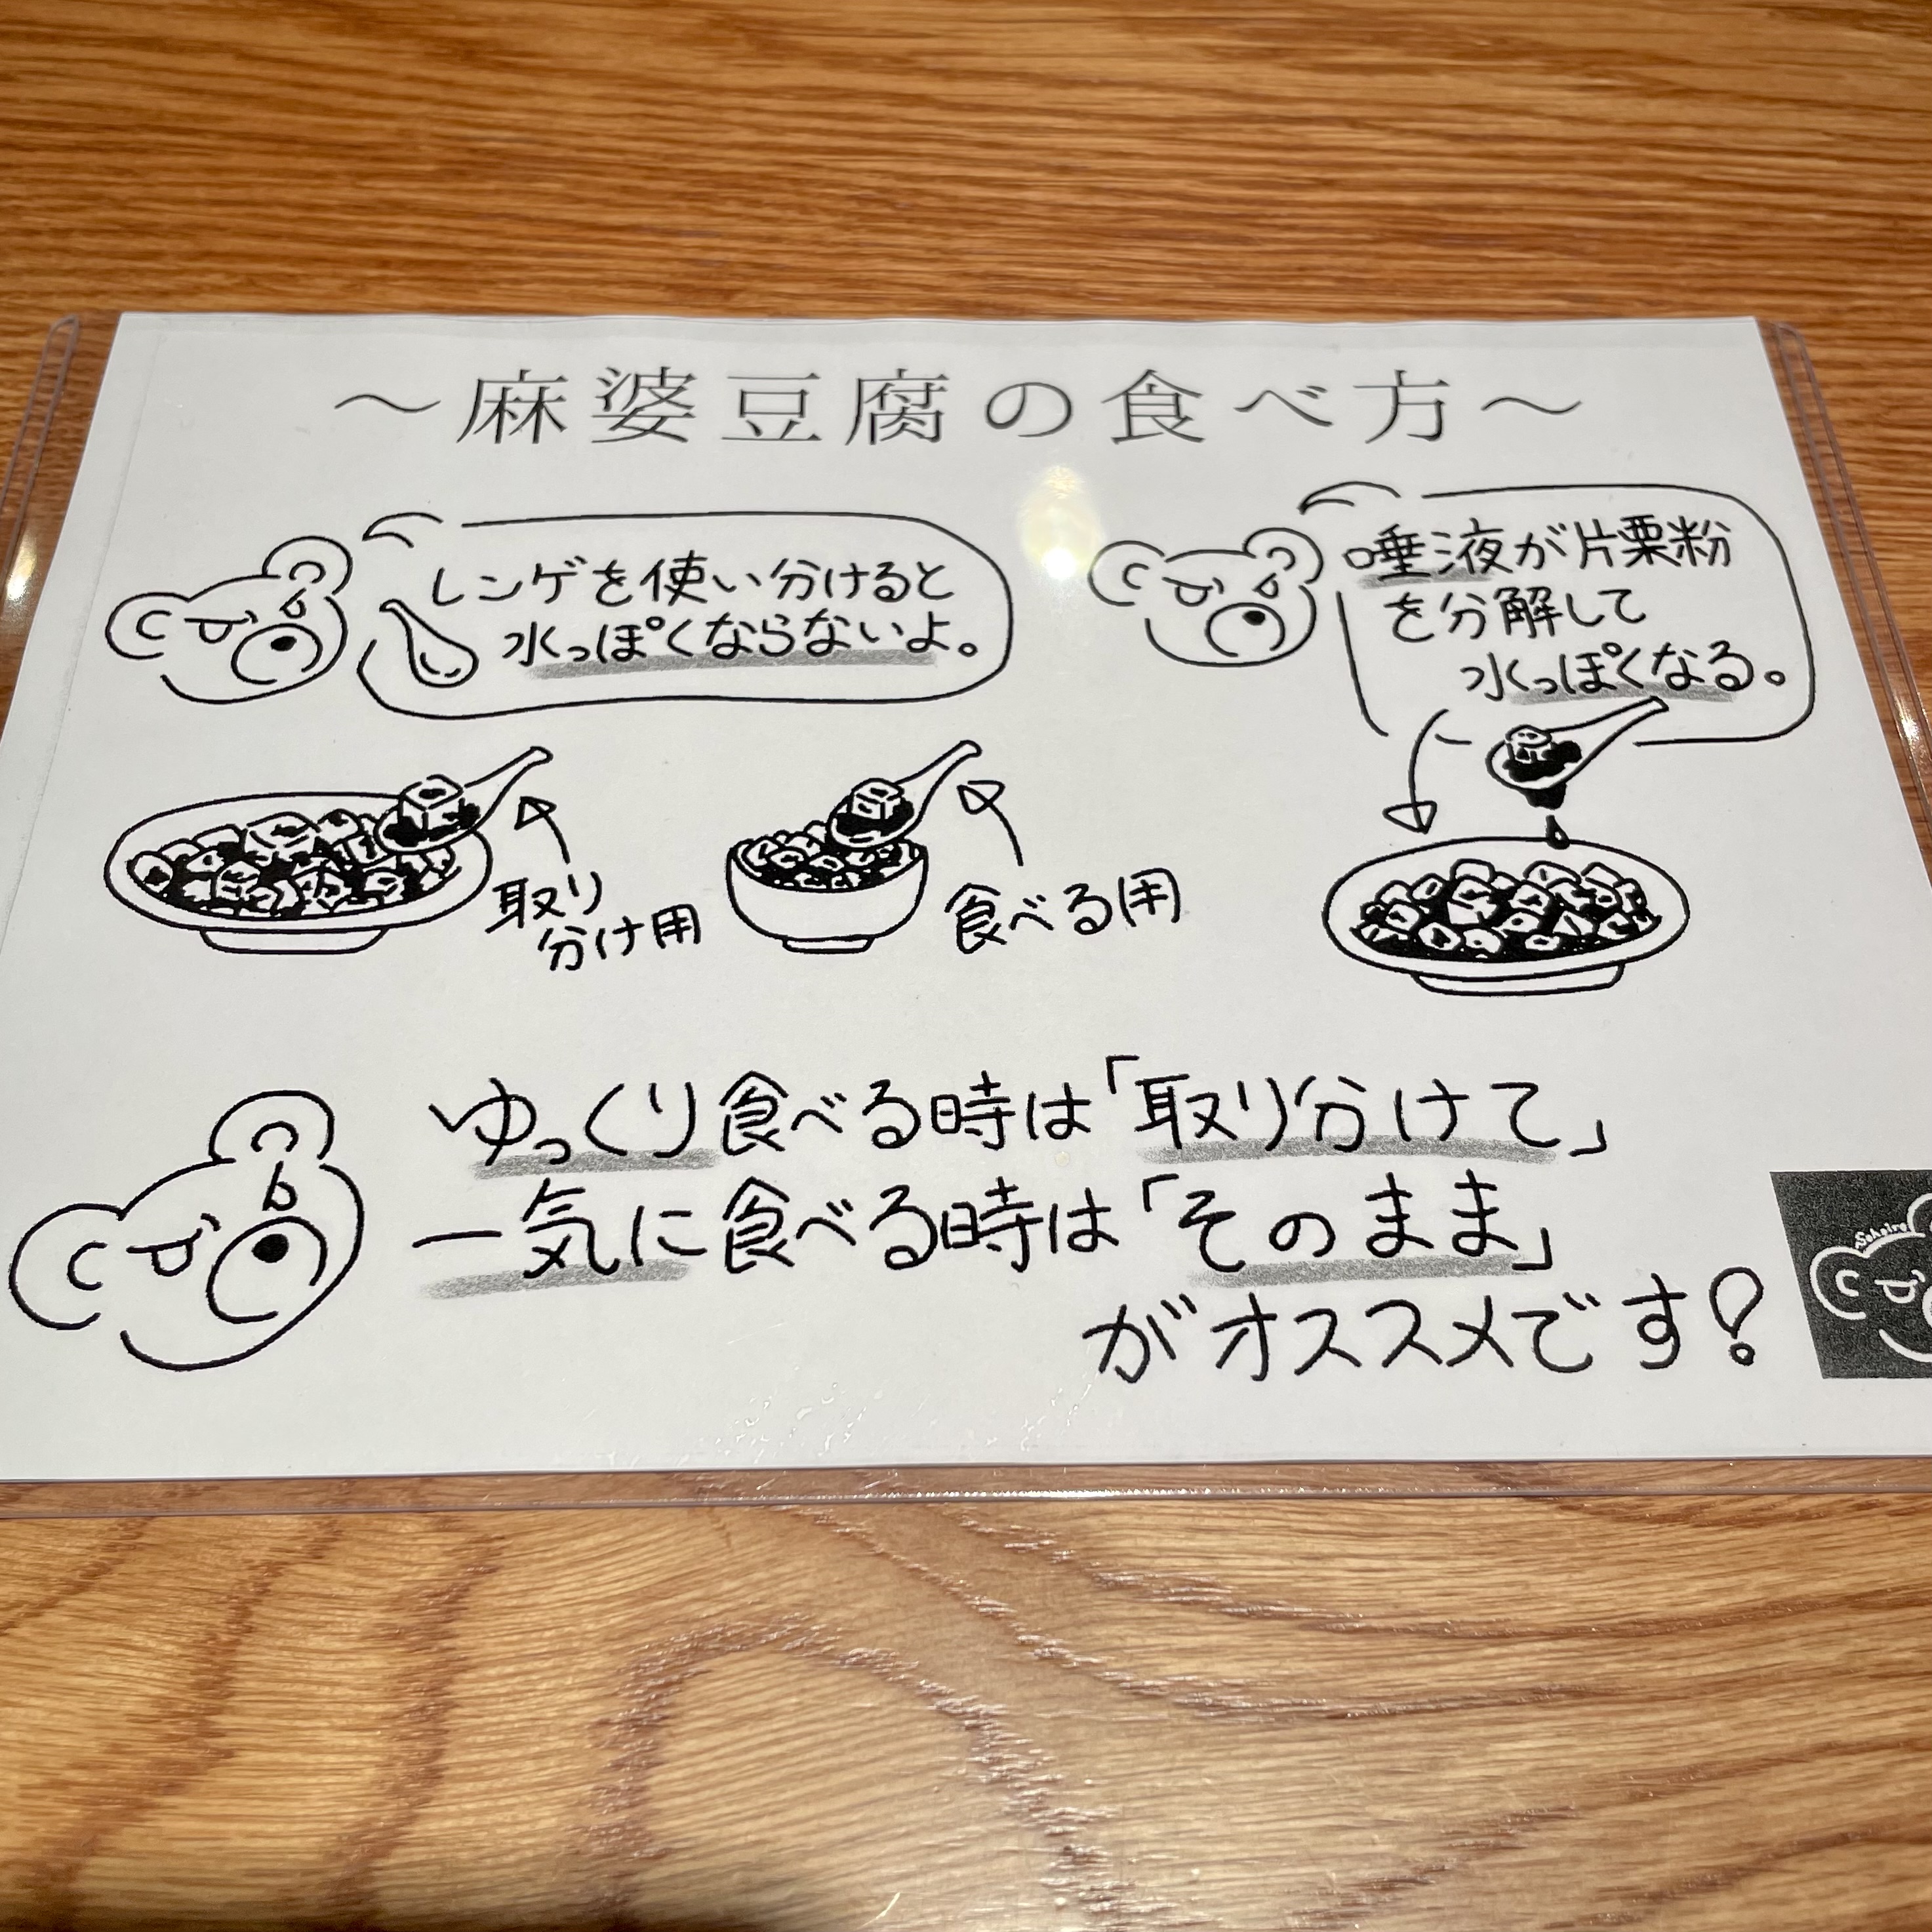 ～麻婆豆腐の食べ方～
レンゲを使い分けると
水っぽくならないよ。
唾液が片栗粉
を分解して
水っぽくなる。
取り
分け用
食べる用
ゆっくり食べる時は「取り分けて」
一気に食べる時は「そのまま」
がオススメです!